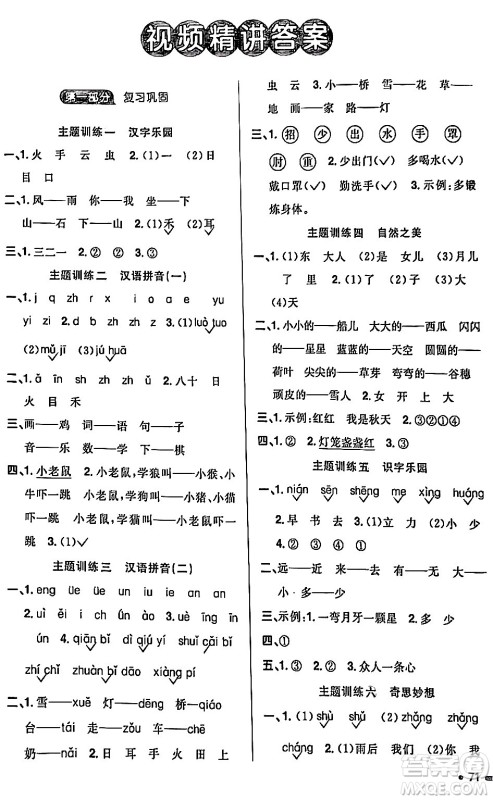 视频精讲答案
第一部分 复习巩固
主题训练一 汉字乐园
一、1.火 手 云 虫 2.(1)一 (2)日
目 口
二、1.风——雨 你——我 天——地 上——下
山——石 日——月 2.(1)禾 (2)耳
三、1.三 二 一 2.② ② 3.④ ① ② ③
主题训练二 汉语拼音(一)
一、1.j q zh r x i o a e y u
yu w ü l z d 2.(1)luò tuo
(2)mǔ jī (3)jú huā
二、1.ɑ ǎn hé zǐ shān 2.八 十 日
火 目 禾
三、画——鸡 词——语 语——句 事——
音——乐 数——数 下——棋
四、1.小老鼠 2.小老鼠,学狼叫——小猴、小
牛吓一跳 小老鼠,学狗叫——小猪、小猫
吓一跳 小老鼠,学虎叫——小羊、小兔吓一
跳 3.(1)✓
主题训练三 汉语拼音(二)
一、1.eng un en ui ie ün an
in ou iu 2.uì ěr yùn īng īn
ǒu óng 3.qiān bǐ dì qiú shuǐ cǎi bǐ
zhí chǐ zì diǎn xiàng pí
二、1.雪——xuě 灯——dēng 桥——qiáo
台——tái 走——zǒu 车——chē
奶——nǎi 2.日 耳 手 火 田 上
虫 云 3.小——桥 雪——花 草——
地 画——家 路——灯
三、①招 少 水 ②口 手
肘 重 2.少出门(✓) 多喝水(✓)
戴口罩(✓) 勤洗手(✓) 3.示例:多锻
炼身体。
主题训练四 自然之美
一、1.(1)东 大人 (2)可是 (3)月儿
了 里 2.(1)天 (2)早 (3)水
(4)天
二、1.小小的——船儿 大大的——西瓜 闪闪
的——星星 蓝蓝的——天空 圆圆的——
荷叶 尖尖的——草芽 弯弯的——谷穗
顽皮的——雪人 2.女 开 上 大
三、1.示例:红红 我是秋天 2.③②①④
四、1.② 2.灯笼盏盏红 3.①
主题训练五 识字乐园
一、1.nián shēn shēng me xìng huáng
2.早 书 去 木 (2)力 小 少
3.② ④ ① ③
二、远——近 来——去 有——无 男——女
多——少 大——小
三、示例:1.一弯月牙 一颗星 2.大 多 少
四、①
五、1.② 2.①③ 3.众人一条心
主题训练六 奇思妙想
一、1.(1)shù shǔ (2)zhǎng zhǎng
cháng 2.(1)雨后 我们 (2)自己
·71·